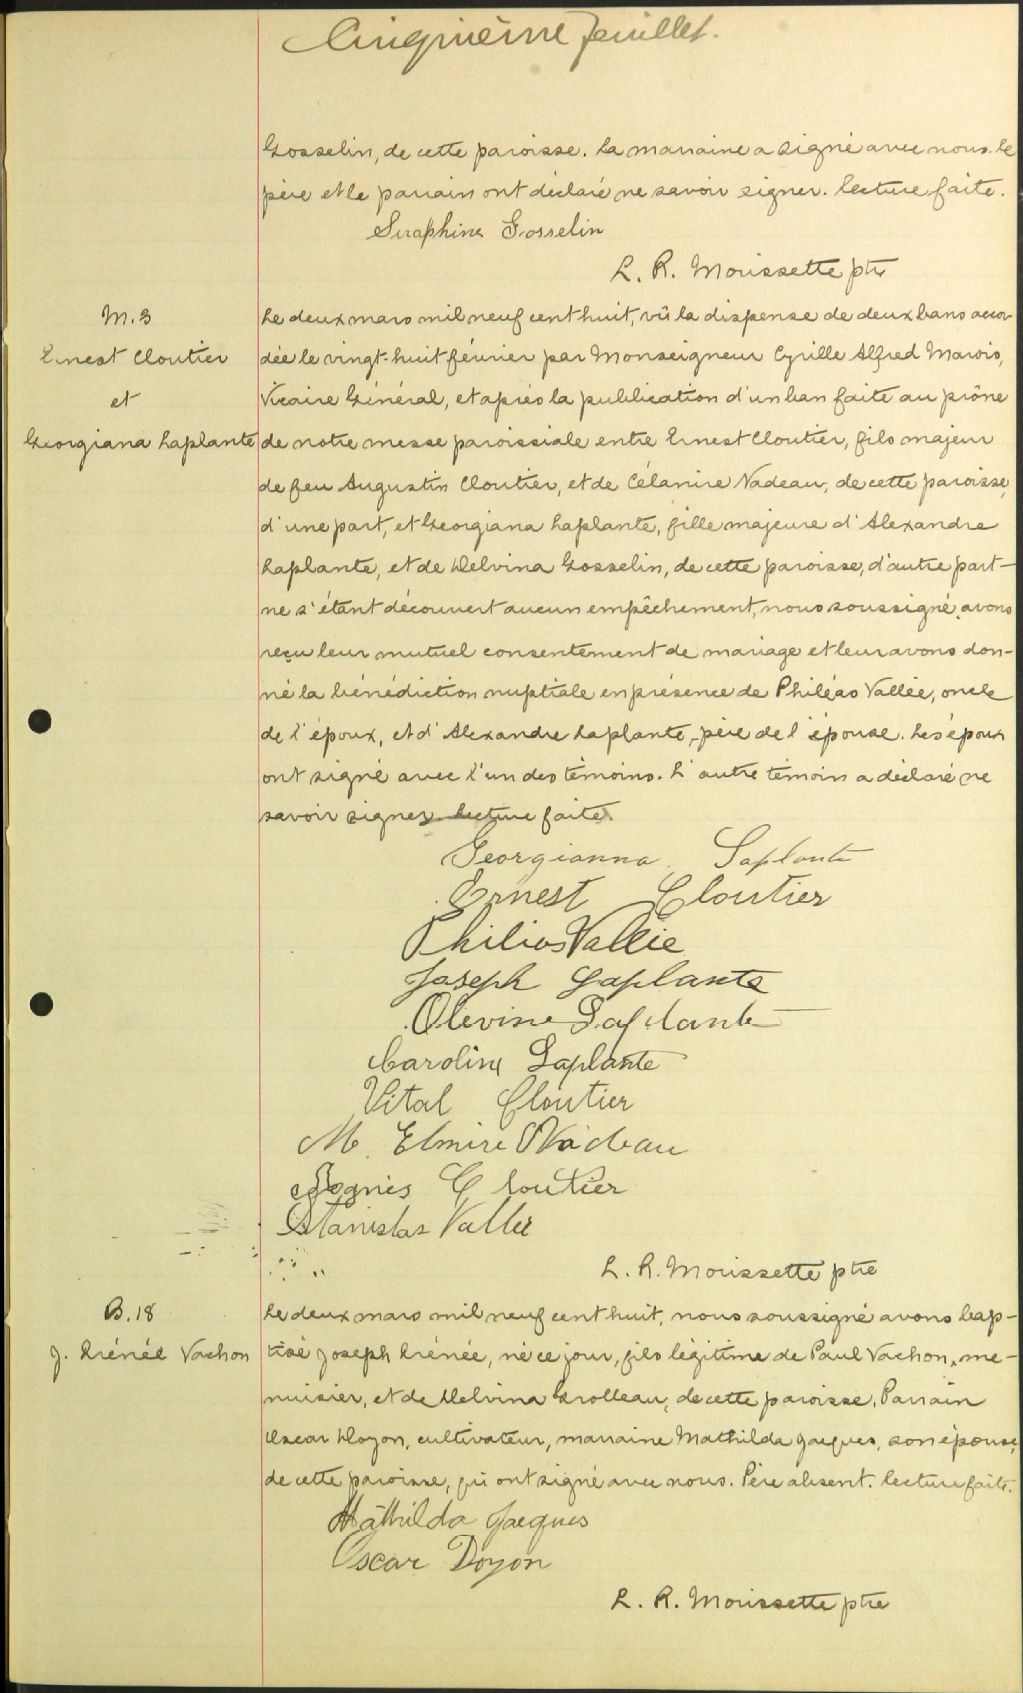 Cinquième feuillet.
Gosselin, de cette paroisse. La marraine a signé avec nous. Le
père et le parrain ont déclaré ne savoir signer. Lecture faite.
Séraphine Gosselin
L. R. Morissette ptre
M. 3
Ernest Cloutier
et
Georgiana Laplante
Le deux mars mil neuf cent huit, vû la dispense de deux bans accor-
dée le vingt-huit février par Monseigneur Cyrille Alfred Marois,
Vicaire Général, et après la publication d'un ban faite au prône
de notre messe paroissiale entre Ernest Cloutier, fils majeur
de feu Augustin Cloutier, et de Célanire Nadeau, de cette paroisse,
d'une part, et Georgiana Laplante, fille majeure d'Alexandre
Laplante, et de Delvina Gosselin, de cette paroisse, d'autre part-
ne s'étant découvert aucun empêchement, nous soussigné, avons
reçu leur mutuel consentement de mariage et leur avons don-
né la bénédiction nuptiale en présence de Philéas Vallée, oncle
de l'époux, et d'Alexandre Laplante, père de l'épouse. Les époux
ont signé avec l'un des témoins. L'autre témoin a déclaré ne
savoir signer. Lecture faite.
Georgianna Laplante
Ernest Cloutier
Philias Vallie
Joseph Laplante
Olevine Laplante
Caroline Laplante
Vital Cloutier
M. Elmire Nadeau
Agnès Cloutier
Stanislas Vallée
L. R. Morissette ptre
B. 18
J. Irénée Vachon
Le deux mars mil neuf cent huit, nous soussigné avons bap-
tisé Joseph Irénée, né ce jour, fils légitime de Paul Vachon, me-
nuisier, et de Delvina Grolleau, de cette paroisse. Parrain
Oscar Doyon, cultivateur, marraine Mathilda Jacques, son épouse,
de cette paroisse, qui ont signé avec nous. Père absent. Lecture faite.
Mathilda Jacques
Oscar Doyon
L. R. Morissette ptre